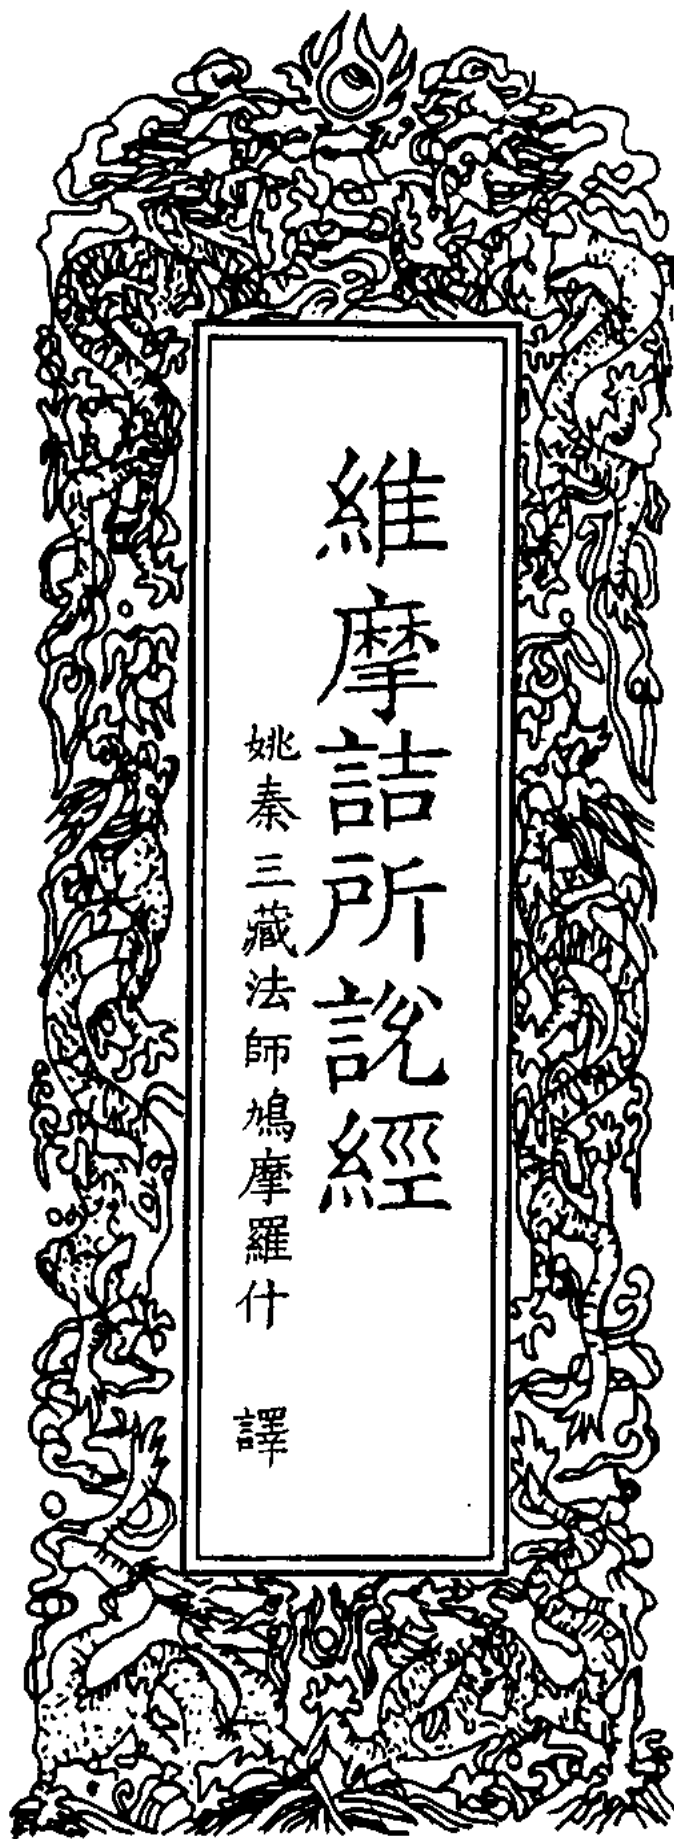 維摩詰所說經
姚秦三藏法師鳩摩羅什 譯